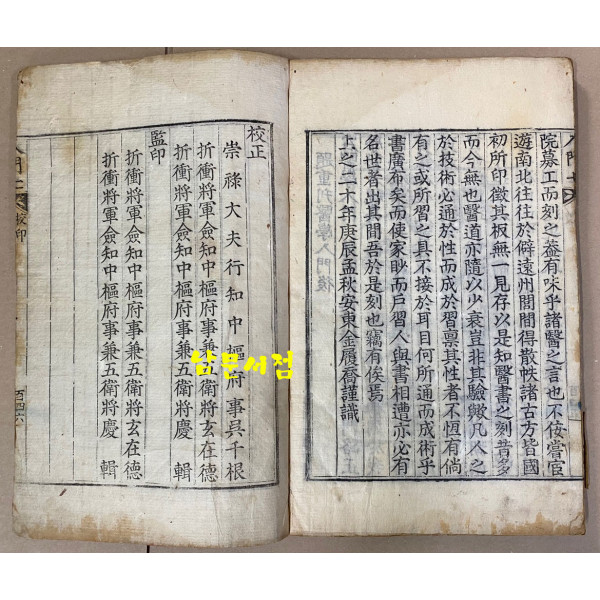 院募工而刻之蓋有味乎諸醫之言也不佞嘗宦
遊南北往往於僻遠州閭間得散帙諸古方皆國
初所印徵其板無一見存以是知醫書之刻昔多
而今無也醫道亦隨以少衰豈非其驗歟凡人之
於技術必通於性而成於習禀其性者不恆有倘
有之或所習之具不接於耳目何所通而成術乎
書廣布矣而使家眇而戶習人與書相遭亦必有
名世者出其間吾於是刻也竊有俟焉
上之二十年庚辰孟秋安東金履喬謹識
題重刊醫學入門後
校正
崇祿大夫行知中樞府事吳千根
折衝將軍僉知中樞府事兼五衛將玄在德
折衝將軍僉知中樞府事兼五衛將慶 輯
監印
折衝將軍僉知中樞府事兼五衛將玄在德
折衝將軍僉知中樞府事兼五衛將慶 輯
入門七
校印
百四六
남문서점